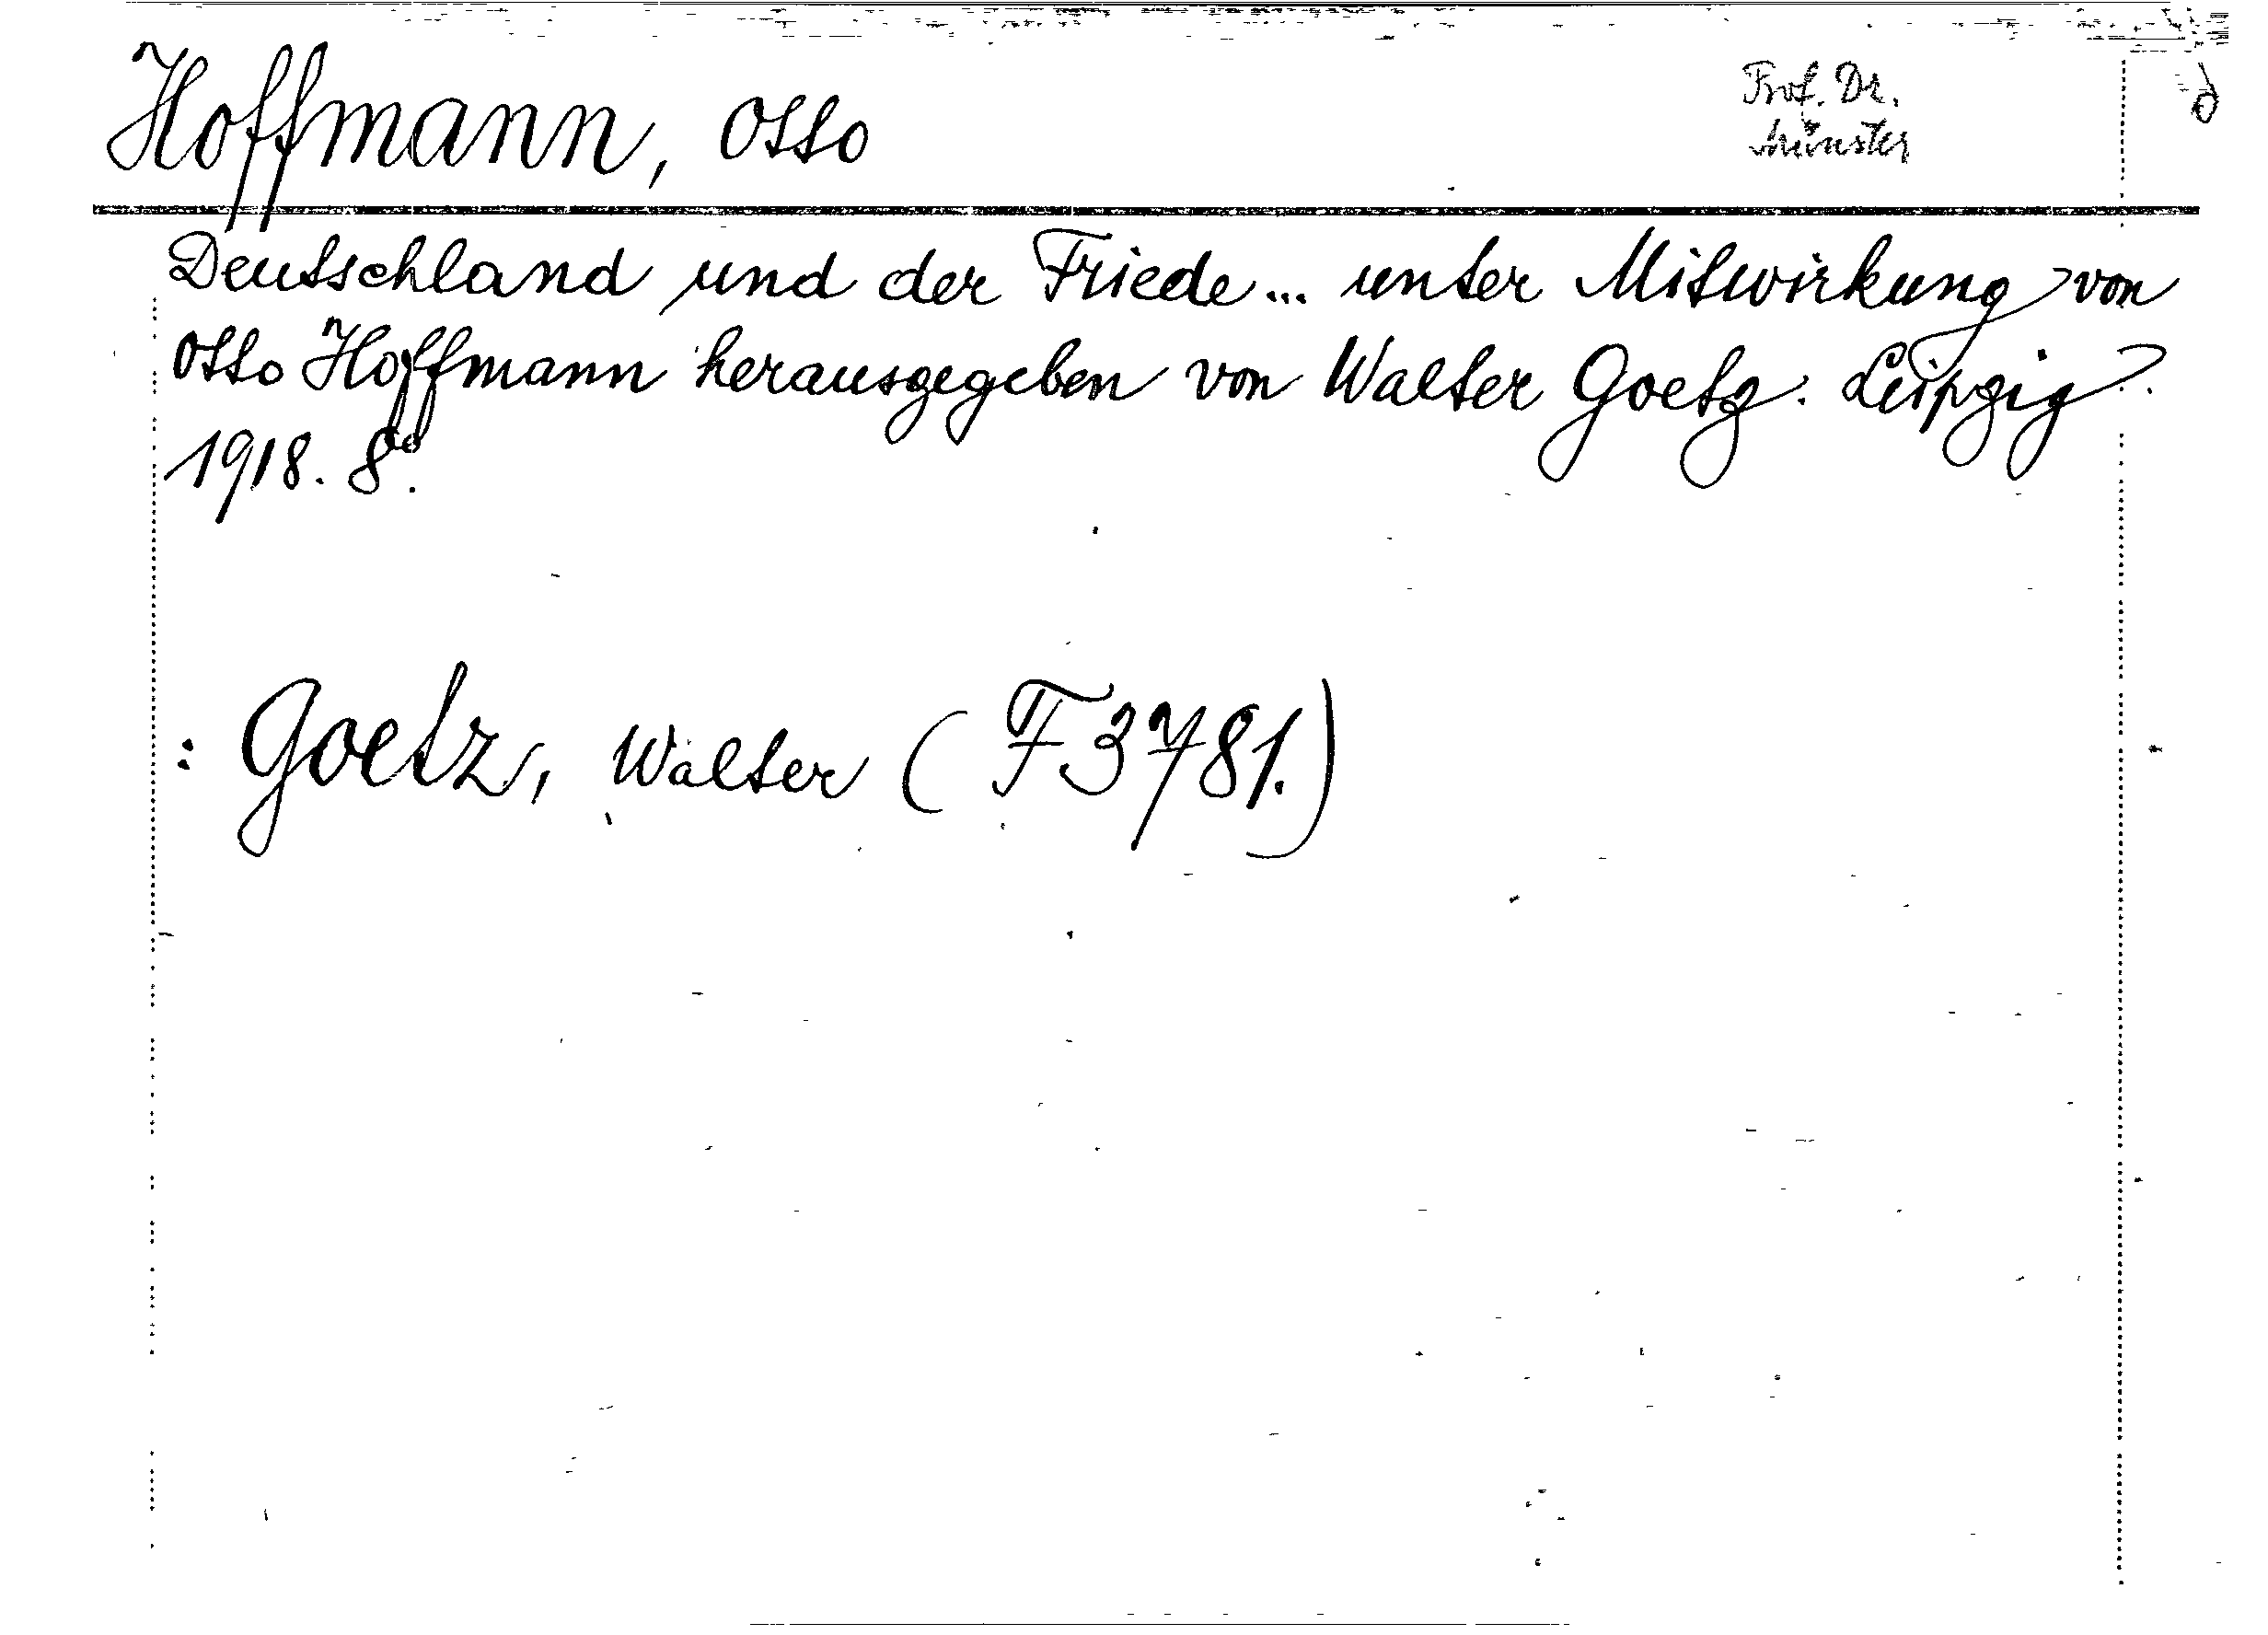 Hoffmann, Otto
Prof. Dr.
Münster
Deutschland und der Friede... unter Mitwirkung von
Otto Hoffmann herausgegeben von Walter Goetz. Leipzig.
1918. 8°.
: Goetz, Walter (F3781.)